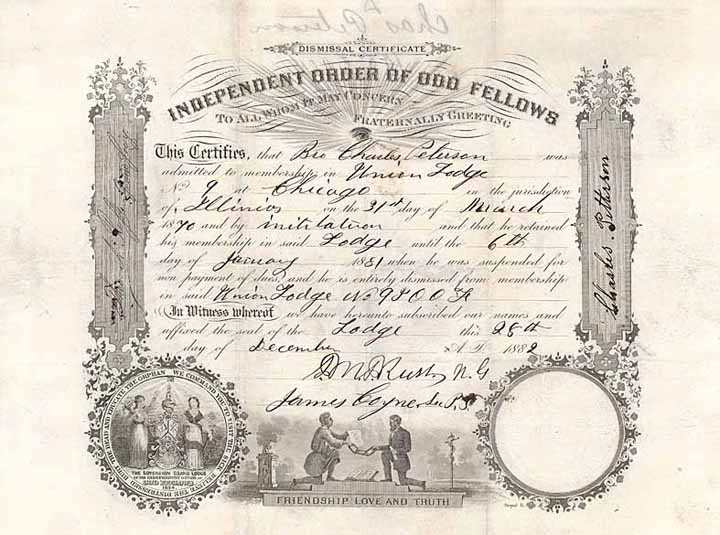 Chas Peterson
DISMISSAL CERTIFICATE
INDEPENDENT ORDER OF ODD FELLOWS
TO ALL WHOM IT MAY CONCERN
FRATERNALLY GREETING
This Certifies, that Bro Charles Peterson was
admitted to membership in Union Lodge
No 9 at Chicago in the jurisdiction
of Illinois on the 31st day of March
1870 and by initiation and that he retained
his membership in said Lodge until the 6th
day of January 1881 when he was suspended for
non payment of dues, and he is entirely dismissed from membership
in said Union Lodge No 9 I O O F
In Witness whereof we have hereunto subscribed our names and
affixed the seal of the Lodge this 28th
day of December A.D. 1882
N.G
James Coyne
Charles. Petterson
WE COMMAND YOU TO VISIT THE SICK, RELIEVE THE DISTRESSED, BURY THE DEAD AND EDUCATE THE ORPHAN
THE SOVEREIGN GRAND LODGE
FRIENDSHIP LOVE AND TRUTH